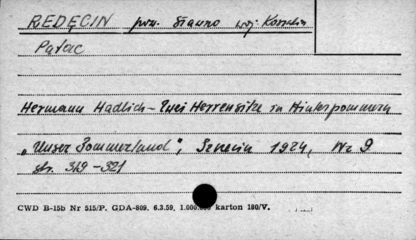 REDĘCIN pow. Sławno woj. Koszalin
Pałac
Hermann Hadlich - Zwei Herrensitze in Hinterpommern
„Unser Pommerland", Szczecin 1924, Nr 9
str. 319-321
CWD B-15b Nr 515/P. GDA-809. 6.3.59. 1.000.000 karton 180/V.